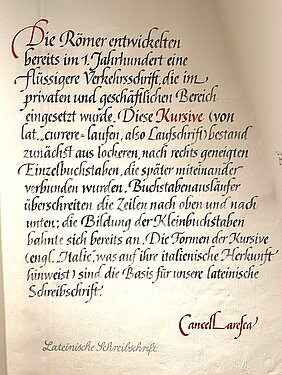 Die Römer entwickelten
bereits im 1. Jahrhundert eine
flüssigere Verkehrsschrift, die im
privaten und geschäftlichen Bereich
eingesetzt wurde. Diese Kursive (von
lat. „currere“= laufen, also Laufschrift) bestand
zunächst aus lockeren, nach rechts geneigten
Einzelbuchstaben, die später miteinander
verbunden wurden. Buchstabenausläufer
überschreiten die Zeilen nach oben und nach
unten; die Bildung der Kleinbuchstaben
bahnte sich bereits an. Die Formen der Kursive
(engl. „Italic“, was auf ihre italienische Herkunft
hinweist) sind die Basis für unsere lateinische
Schreibschrift.
Cancellaresca
Lateinische Schreibschrift